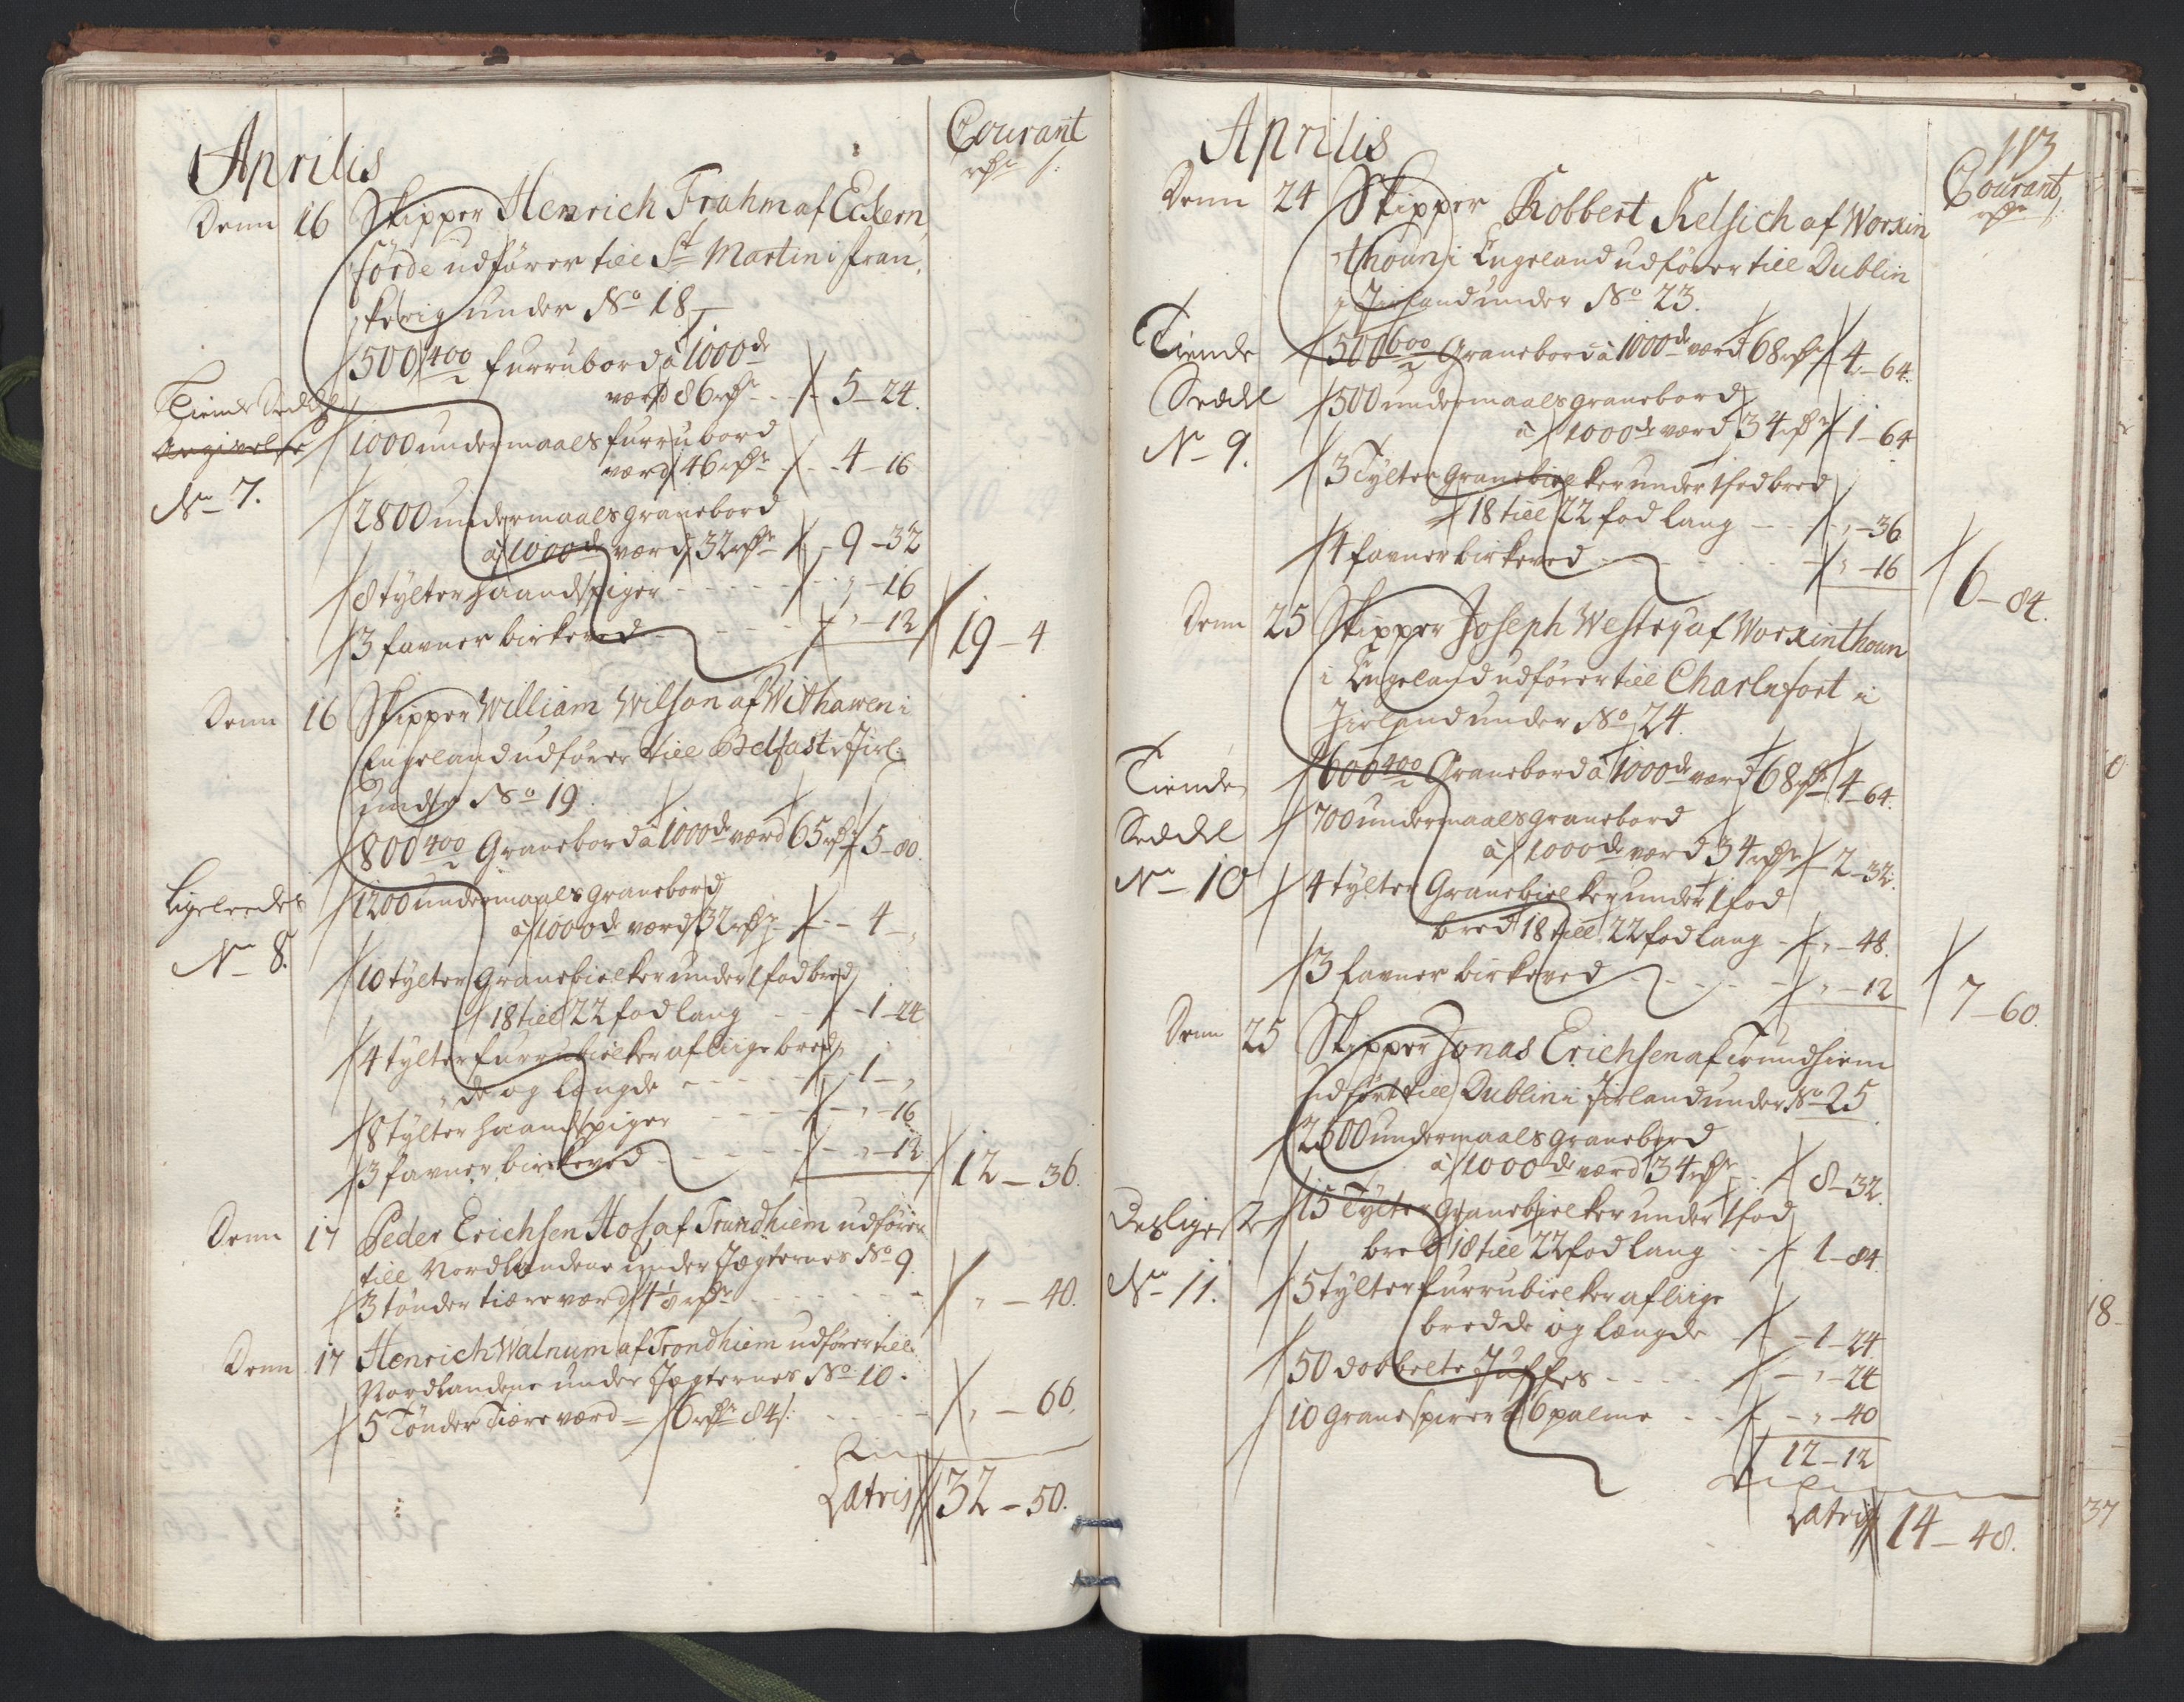 Aprilis
Courant
rdr s:
Denn 16 Skipper Henrich Frahm af Eckern,
förde udfører till St Martin i fran,
skerig under No 18
500 400 furrubord à 1000de
værd 86 rdr - 5 - 24.
Tiende Seddel
Angivelse
No 7.
1000 undermaals furrubord
værd 46 rdr - 4 - 16
2800 undermaals granebord
à 1000de værd 32 rdr - 9 - 32
8 tylter haandspiger - " - 16
3 favner birkeved - " - 12
19 - 4
Denn 16 Skipper William Wilson af Withawen i
Engeland udfører till Belfast i Jirl:
under No 19.
800 400 Granebord à 1000de værd 65 rdr 5 - 80.
Ligeleedes
No 8.
1200 undermaals granebord
à 1000de værd 32 rdr - 4 - "
10 tylter granebielker under 1 fod bred
18 till 22 fod lang - 1 - 24
4 tylter furrubielker af liige bred,
de og længde - 1 - "
8 tylter haandspiger - " - 16
3 favner birkeved - " - 12
12 - 36.
Denn 17 Peder Erichsen Hof af Trundhiem udfører
till Nordlandene under Jægternes No 9.
3 tønder tiære værd 4 1/8 rdr - " - 40.
Denn 17 Henrich Walnum af Trondhiem udfører till
Nordlandene under Jægternes No 10.
5 Tønder Tiære værd - 6 rdr 84 s: - " - 66.
Latris 32 - 50.
113
Aprilis
Courant
rdr s:
Denn 24 Skipper Robbert Kelsich af Worxin
thoun i Engeland udfører till Dublin
i Jirland under No 23.
Tiende
Seddel
No 9.
500 600 Granebord à 1000de værd 68 rdr 4 - 64.
500 undermaals granebord
à 1000de værd 34 rdr 1 - 64
3 Tylter Granebielker under 1 fod bred
18 till 22 fod lang - " - 36
4 favner birkeved - " - 16
6 - 84.
Denn 25 Skipper Joseph Westry af Worxinthoun
i Engeland udfører till Charlefort i
Jirland under No 24.
Tiende
Seddel
No 10
600 400 Granebord à 1000de værd 68 rdr 4 - 64.
700 undermaals granebord
à 1000de værd 34 rdr 2 - 32.
4 tylter Granebielker under 1 fod
bred 18 till 22 fod lang - " - 48.
3 favner birkeved - " - 12
7 - 60.
Denn 25 Skipper Jonas Erichsen af Trundhiem
udført till Dublin i Jirland under No 25
2500 undermaals granebord
à 1000de værd 34 rdr - 8 - 32.
Desligeste
No 11.
15 Tylter Granebielker under 1 fod
bred 18 till 22 fod lang - 1 - 84.
5 tylter furrubielker af liige
bredde og længde - 1 - 24
50 dobbelte Juffes - " - 24
10 grane spirer à 6 palme - " - 40
12 - 12
Latris 14 - 48.